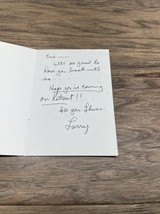 will be good to
have you back with
us
Hope you're coming
on Retreat!!
See you
Larry